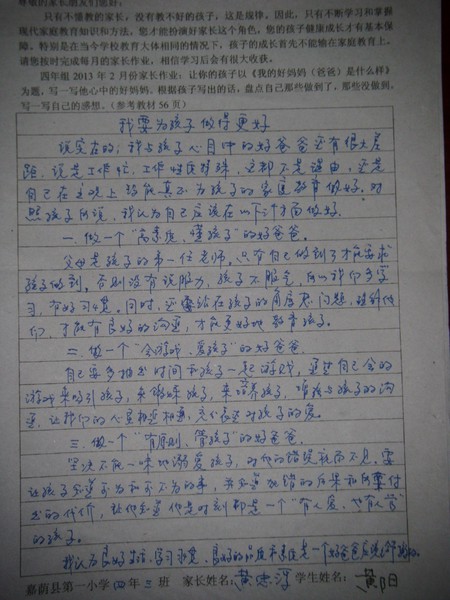 尊敬的家长朋友们您好：
只有不懂教的家长，没有教不好的孩子，这是规律。因此，只有不断学习和掌握
现代家庭教育知识和方法，您才能扮演好家长这个角色。您的孩子健康成长才有基本保
障。特别是在当今学校教育大体相同的情况下，孩子的成长首先不能输在家庭教育上。
请您按时完成每月的家长作业。相信学习后会有很大收获。
四年组 2013 年 2 月份家长作业：让你的孩子以《我的好妈妈（爸爸）是什么样》
为题，写一写他心中的好妈妈。根据孩子写出的话，盘点自己那些做到了，那些没做到。
写一写自己的感想。（参考教材 56 页）
我要为孩子做得更好
说实在的，我与孩子心目中的好爸爸还有很大差
距，说是工作忙、工作性质特殊，这都不是理由，还是
自己在主观上没能真正为孩子的家庭教育做好。对
照孩子所说，我认为自己应该在以下三个方面做好。
一、做一个“高素质、懂孩子”的好爸爸。
父母是孩子的第一任老师，只有自己做到了才能要求
孩子做到。否则没有说服力，孩子不服气，所以我们多学
习，有好习惯。同时，还要站在孩子的角度思考问题，理解他
们，才能有良好的沟通，才能更好地教育孩子。
二、做一个“会游戏、爱孩子”的好爸爸。
自己要多抽出时间和孩子一起游戏，更要自己会的
游戏来吸引孩子，来锻炼孩子，来培养孩子，增强与孩子的沟
通，让我们的心灵相连相通，充分表达对孩子的爱。
三、做一个“有原则、管孩子”的好爸爸。
坚决不能一味地溺爱孩子，对他的错误视而不见，要
让孩子知道可为和不可为的事，并知道犯错的后果和所要付
出的代价，让他知道他是时刻都是一个“有人爱、也有人管”
的孩子。
我认为良好生活、学习习惯，良好的品质和素质是一个好爸爸应
嘉荫县第一小学四年三班 家长姓名：黄忠 学生姓名：黄阳